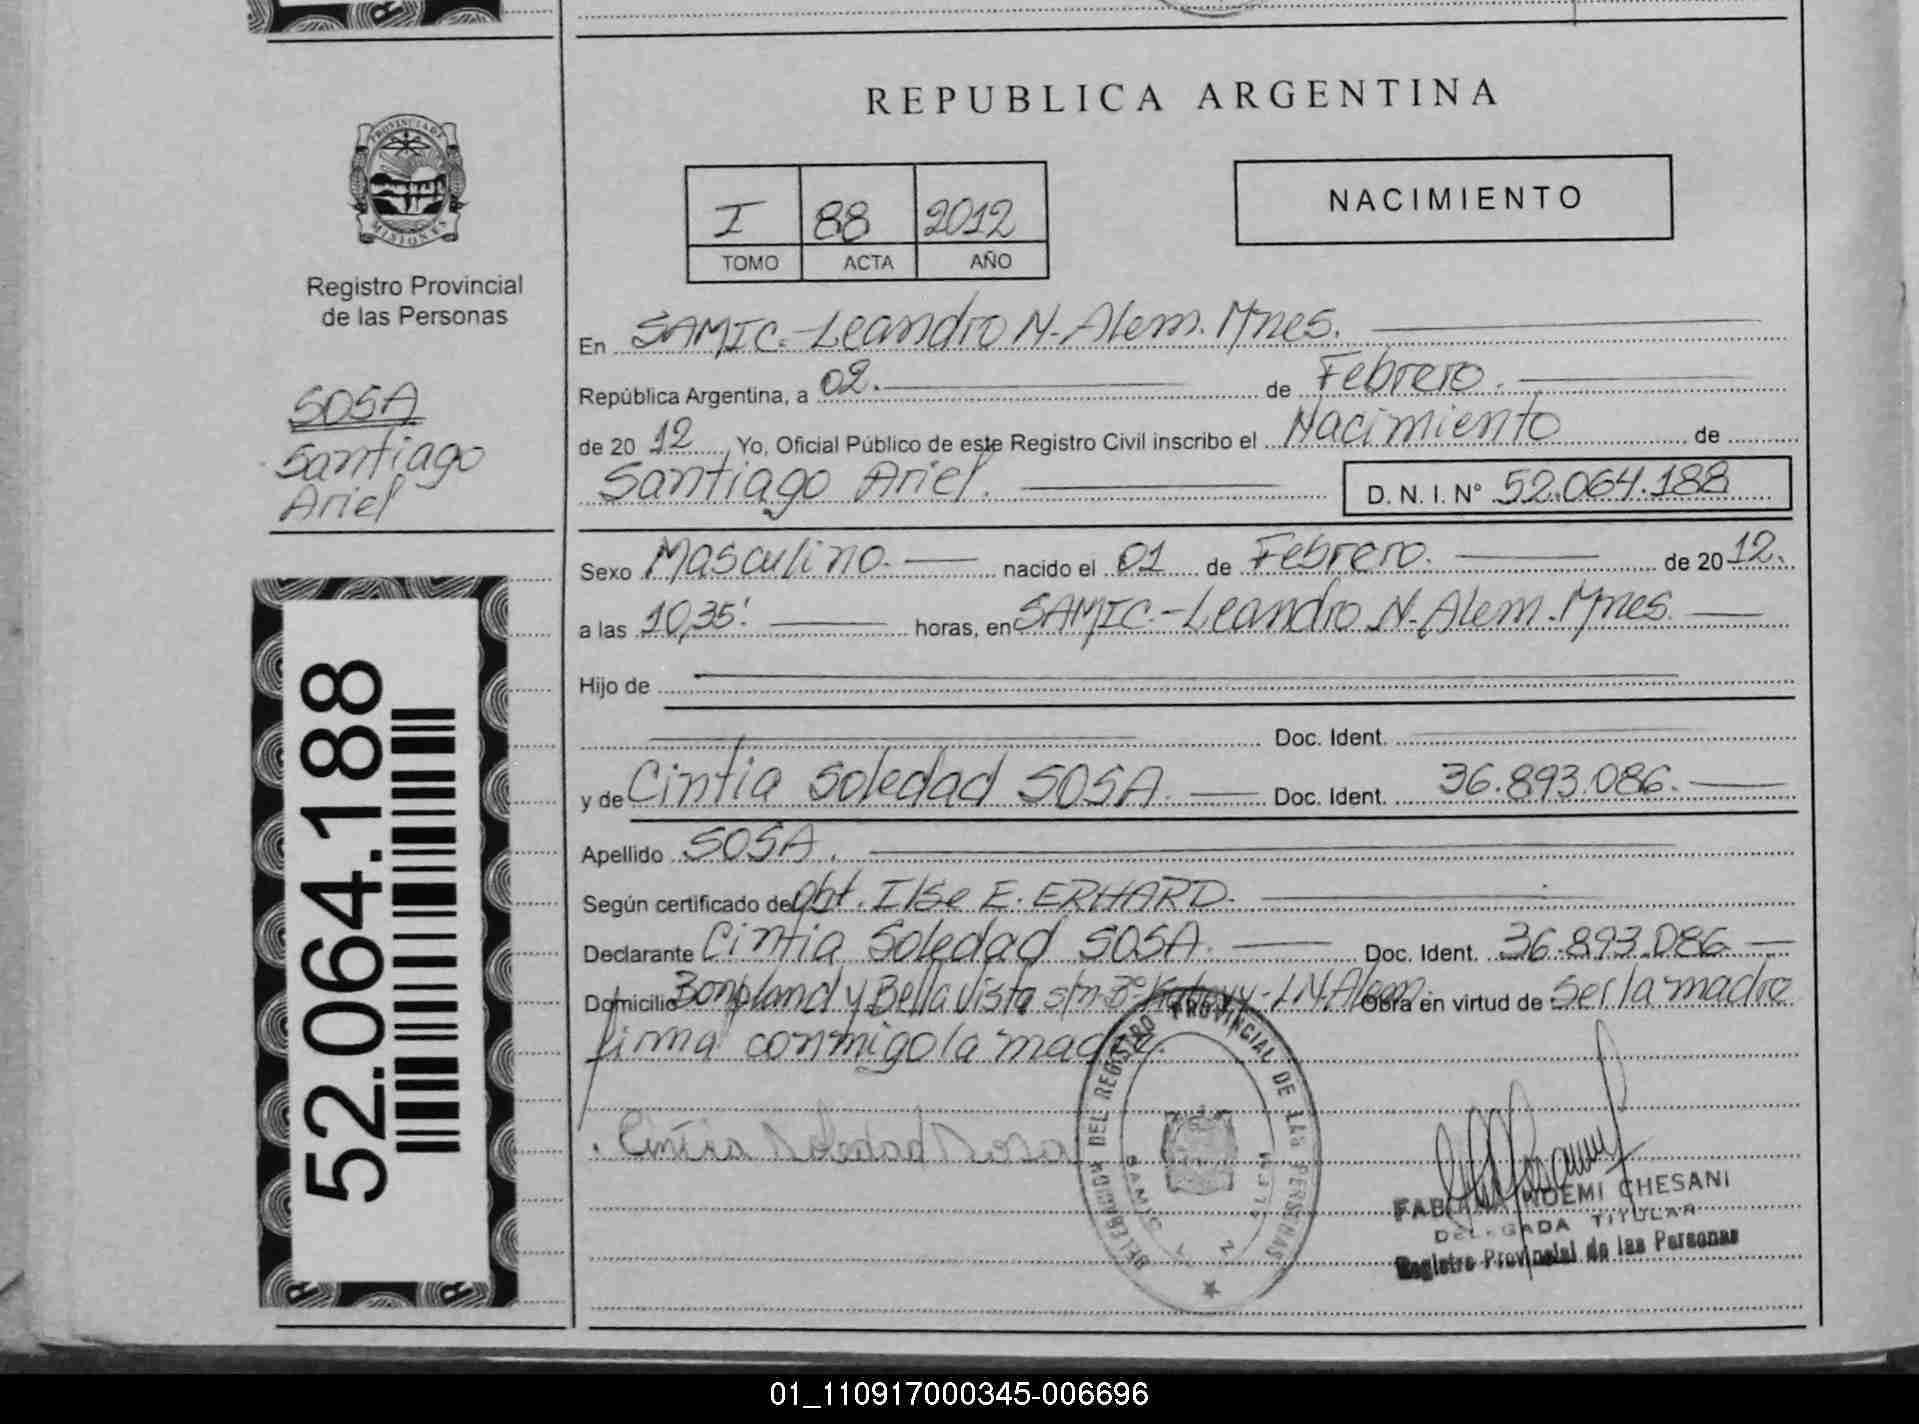 REPUBLICA ARGENTINA
PROVINCIA DE MISIONES
Registro Provincial
de las Personas
SOSA
Santiago
Ariel
52.064.188
I 88 2012
TOMO ACTA AÑO
NACIMIENTO
En SAMIC.-Leandro N-Alem.Mnes.
República Argentina, a 02. de Febrero.
de 2012 Yo, Oficial Público de este Registro Civil inscribo el Nacimiento de
Santiago Ariel. D. N. I. Nº 52.064.188
Sexo Masculino. nacido el 01 de Febrero. de 2012.
a las 10,35' horas, en SAMIC.-Leandro N-Alem.Mnes.
Hijo de
Doc. Ident.
y de Cintia Soledad SOSA. Doc. Ident. 36.893.086.
Apellido SOSA.
Según certificado de Obt. Ilse E. ERHARD.
Declarante Cintia Soledad SOSA. Doc. Ident. 36.893.086
Domicilio Bonpland y Bella Vista s/n Bº L.N.Alem. Obra en virtud de Ser la madre
firma conmigo la madre.
Cintia Soledad Sosa
DELEGACION DEL REGISTRO PROVINCIAL DE LAS PERSONAS
SAMIC L. N. ALEM
FABIANA NOEMI CHESANI
DELEGADA TITULAR
Registro Provincial de las Personas
01_110917000345-006696